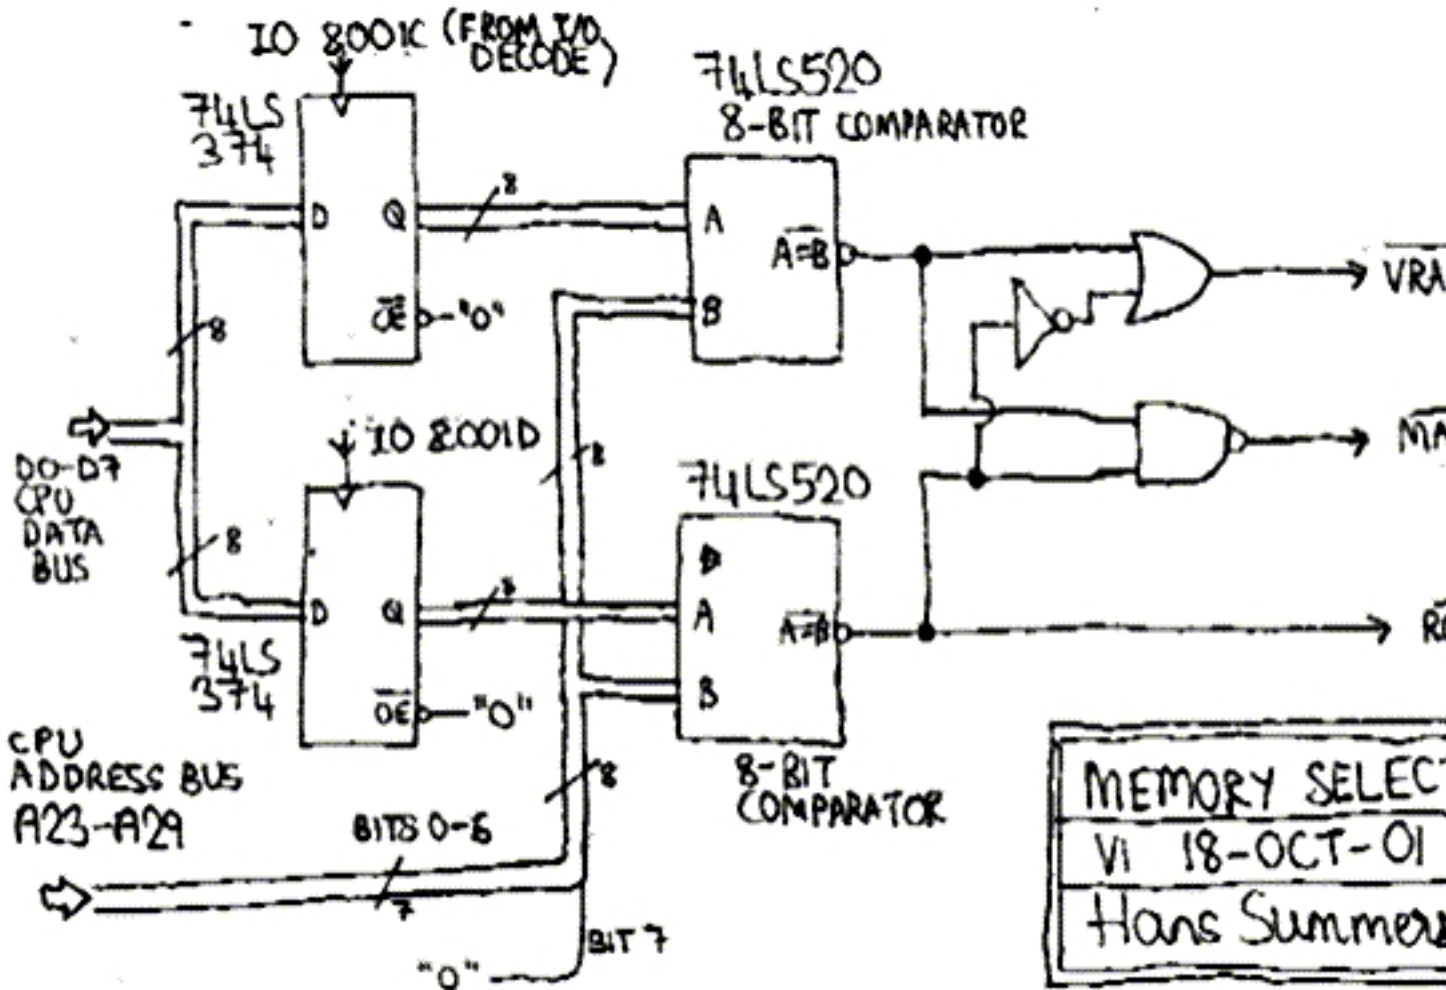 IO 8001C (FROM I/O
DECODE)
74LS
374
D
Q
OE
"0"
8
74LS520
8-BIT COMPARATOR
A
B
A=B
8
VRA
8
D0-D7
CPU
DATA
BUS
IO 8001D
8
8
74LS520
MA
D
Q
OE
"0"
74LS
374
8
A
B
A=B
8-BIT
COMPARATOR
CPU
ADDRESS BUS
A23-A29
BITS 0-6
7
8
BIT 7
"0"
MEMORY SELECT
V1 18-OCT-01
Hans Summers